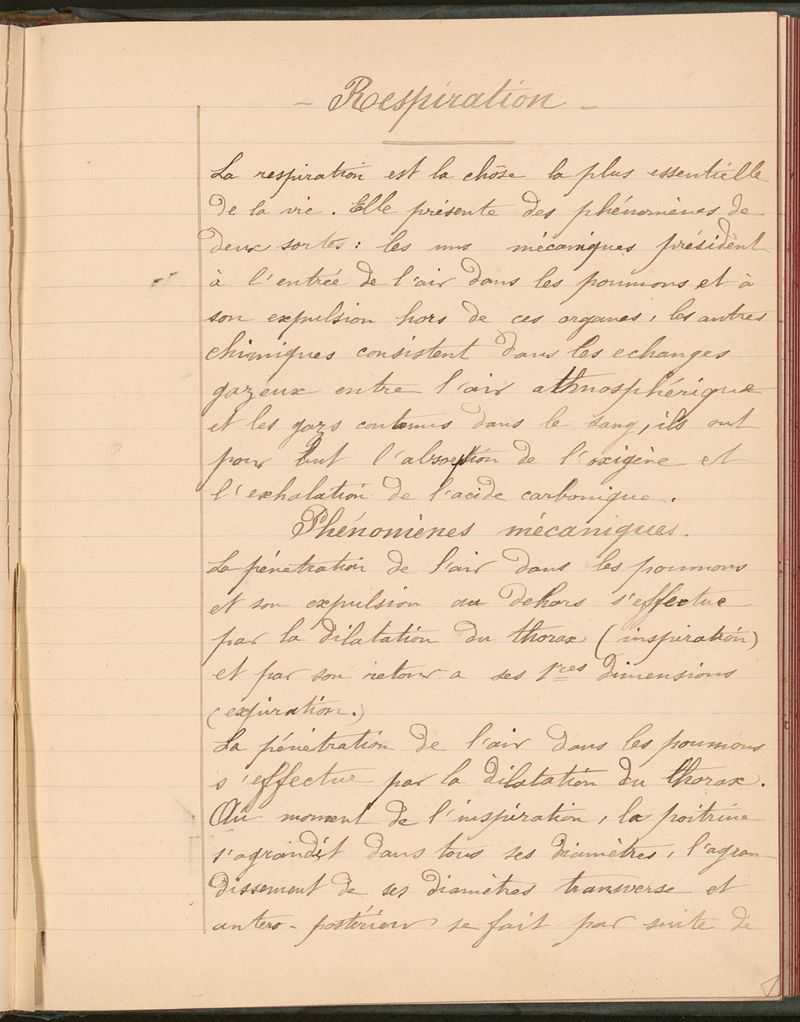 - Respiration -
La respiration est la chôse la plus essentielle
de la vie. Elle présente des phénomènes de
deux sortes : les uns mécaniques président
à l'entrée de l'air dans les poumons et à
son expulsion hors de ces organes, les autres
chimiques consistent dans les echanges
gazeux entre l'air athmosphérique
et les gazs contenus dans le sang, ils ont
pour but l'absorption de l'oxigène et
l'exhalation de l'acide carbonique.
Phénomènes mécaniques.
La pénétration de l'air dans les poumons
et son expulsion au dehors s'effectue
par la dilatation du thorax (inspiration)
et par son retour a ses 1res dimensions
(expiration.)
La pénétration de l'air dans les poumons
s'effectue par la dilatation du thorax.
Au moment de l'inspiration, la poitrine
s'agrandit dans tous ses diamètres, l'agran-
dissement de ses diamètres transverse et
antero-postérieur se fait par suite de